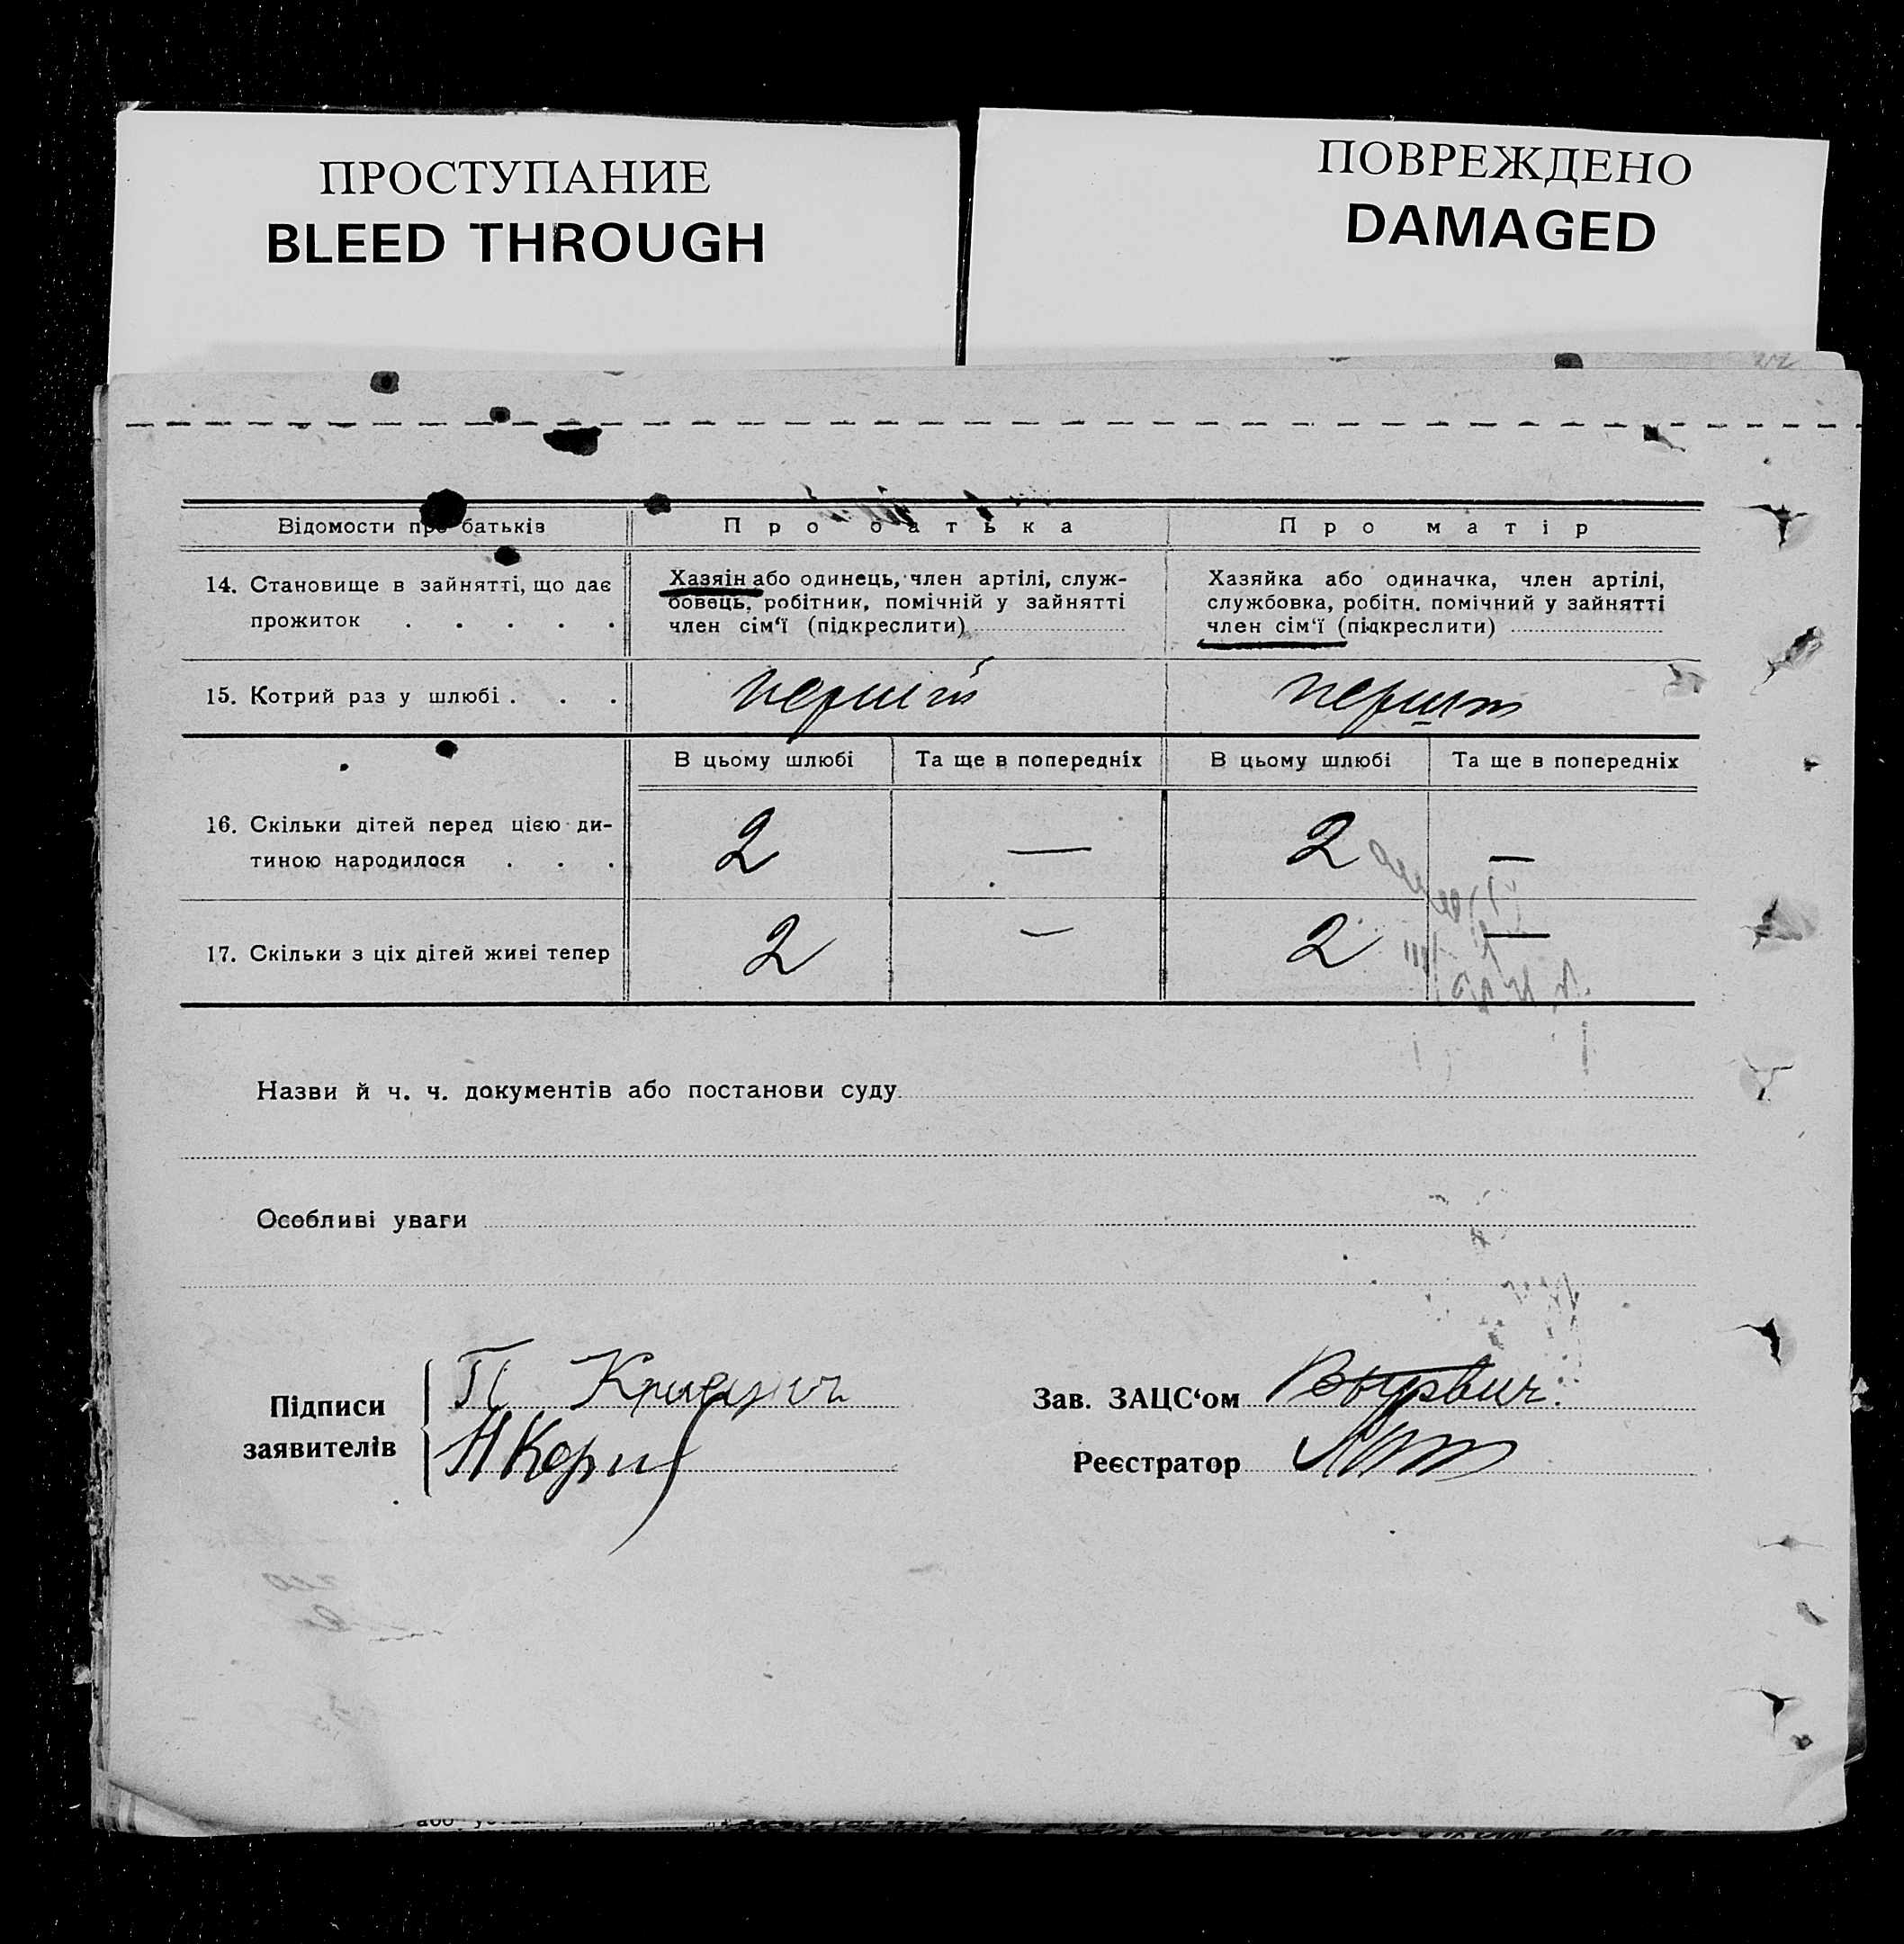 ПРОСТУПАНИЕ
BLEED THROUGH
ПОВРЕЖДЕНО
DAMAGED
Відомости про батьків
Про батька
Про матір
14. Становище в зайнятті, що дає
прожиток . . . . .
Хазяін або одинець, член артілі, служ-
бовець, робітник, помічній у зайнятті
член сім‘ї (підкреслити)
Хазяйка або одиначка, член артілі,
службовка, робітн. помічний у зайнятті
член сім‘ї (підкреслити)
15. Котрий раз у шлюбі . . .
перший
перший
В цьому шлюбі
Та ще в попередніх
В цьому шлюбі
Та ще в попередніх
16. Скільки дітей перед цією ди-
тиною народилося . . .
2 — 2 —
17. Скільки з ціх дітей живі тепер
2 — 2 —
Назви й ч. ч. документів або постанови суду
Особливі уваги
Підписи
заявителів
Зав. ЗАЦС‘ом
Реєстратор